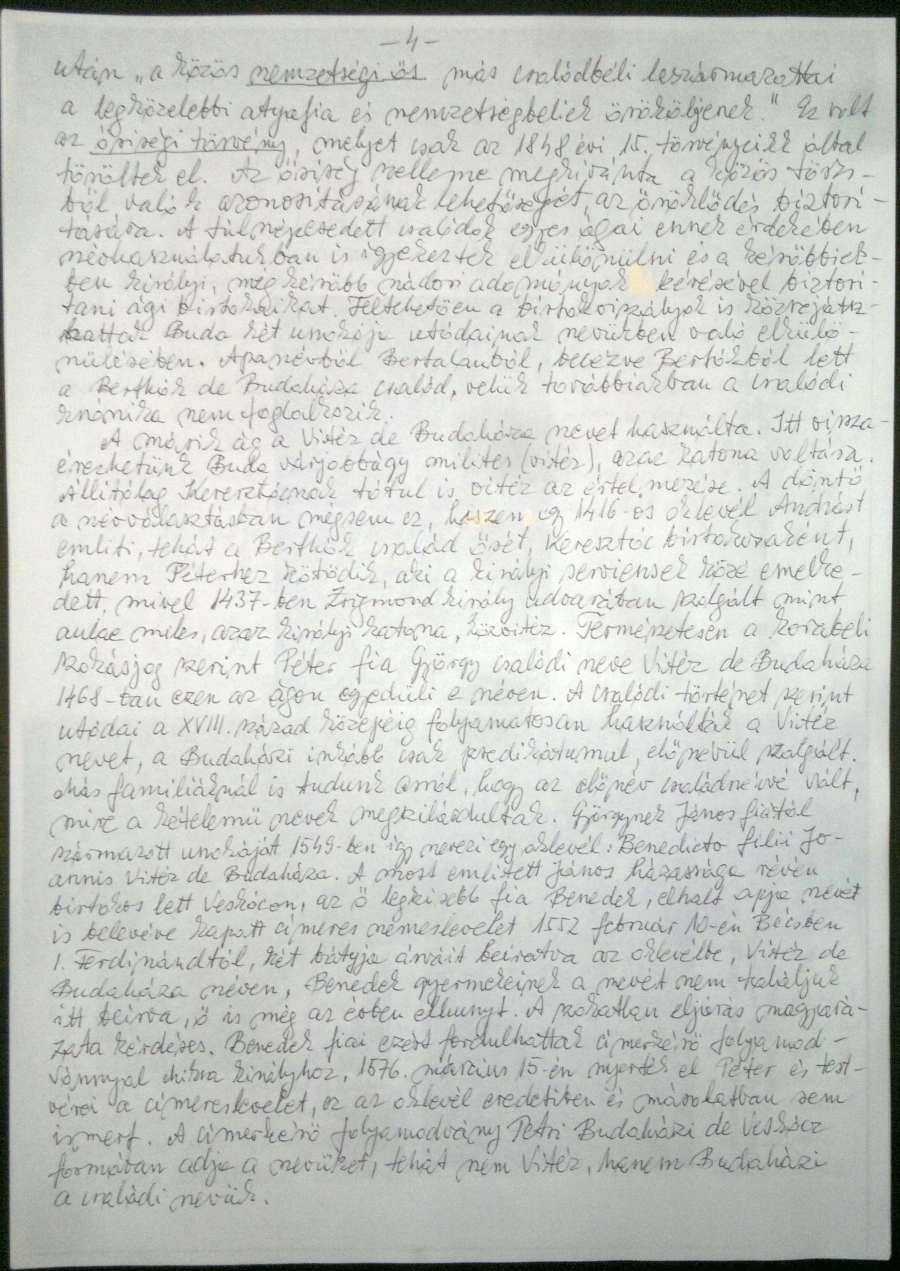 -4-
után „a közös nemzetségi ős más családbéli leszármazottai
a legközelebbi atyafia és nemzetségbeliek örököljenek." Ez volt
az ősiségi törvény, melyet csak az 1848 évi 15. törvénycikk által
töröltek el. Az ősiség szelleme megkívánta a közös törzs-
ből valók azonosításának lehetőségét, az öröklődés biztosí-
tására. A túlnépesedett családok egyes ágai ennek érdekében
névhasználatukban is igyekeztek elkülönülni és a későbbiek-
ben királyi, még később nádori adományok kérésével biztosí-
tani ági birtokaikat. Feltehetően a birtokviszályok is közrejátsz-
hattak Buda két unokája utódainak nevükben való elkülö-
nülésében. Apanévből Bertalanból, becézve Bertókból lett
a Berthók de Budaháza család, velük továbbiakban a családi
krónika nem foglalkozik.
A másik ág a Vitéz de Budaháza nevet használta. Itt vissza-
érezhetünk Buda várjobbágy milites (vitéz), azaz katona voltára.
Állítólag Keresztócnak tótul is vitéz az értelmezése. A döntő
a névválasztásban mégsem ez, hiszen egy 1416-os oklevél Andrást
említi, tehát a Berthók család ősét, Keresztóc birtokosaként,
hanem Péterhez kötődik, aki a királyi serviensek közé emelke-
dett, mivel 1437-ben Zsigmond király udvarában szolgált mint
aulae miles, azaz királyi katona, közvitéz. Természetesen a korabeli
szokásjog szerint Péter fia György családi neve Vitéz de Budaháza
1468-ban ezen az ágon egyedüli e néven. A családi történet szerint
utódai a XVIII. század közepéig folyamatosan használták a Vitéz
nevet, a Budaházi inkább csak predikátumul, előnévül szolgált.
Más famíliáknál is tudunk arról, hogy az előnév családnévvé vált,
mire a kételemű nevek megszilárdultak. Györgynek János fiától
származott unokáját 1549-ben így nevezi egy oklevél: Benedicto filii Jo-
annis Vitéz de Budaháza. A most említett János házassága révén
birtokos lett Veskócon, az ő legkisebb fia Benedek, elhalt apja nevét
is belevéve kapott címeres nemeslevelet 1552 február 10-én Bécsben
I. Ferdinándtól, két bátyja árváit beíratva az oklevélbe, Vitéz de
Budaháza néven, Benedek gyermekeinek a nevét nem találjuk
itt beírva, ő is még az évben elhunyt. A szokatlan eljárás magyará-
zata kérdéses. Benedek fiai ezért fordulhattak címerkérő folyamod-
vánnyal Miksa királyhoz, 1576. március 15-én nyerték el Péter és test-
vérei a címereslevelet, ez az oklevél eredetiben és másolatban sem
ismert. A címerkérő folyamodvány Petri Budaházi de Veskócz
formában adja a nevüket, tehát nem Vitéz, hanem Budaházi
a családi nevük.